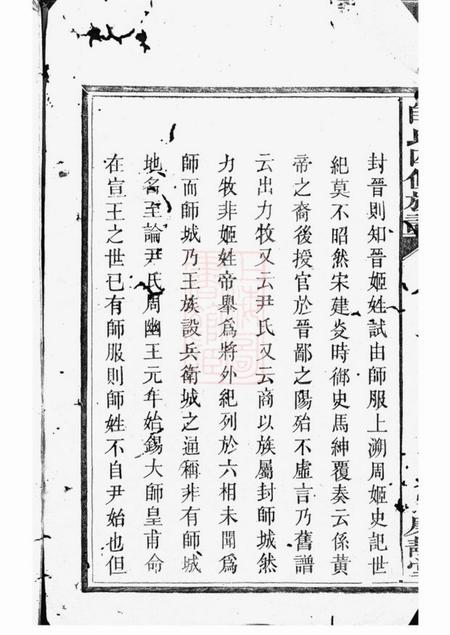 封晉則知晉姬姓試由師服上溯周姬史記世
紀莫不昭然宋建炎時御史馬紳覆奏云係黃
帝之裔後授官於晉鄙之陽殆不虛言乃舊譜
云出力牧又云尹氏又云商以族屬封師城然
力牧非姬姓帝舉爲將外紀列於六相未聞爲
師而師城乃王族設兵衛城之通稱非有師城
地名至論尹氏周幽王元年始錫大師皇甫命
在宣王之世已有師服則師姓不自尹始也但